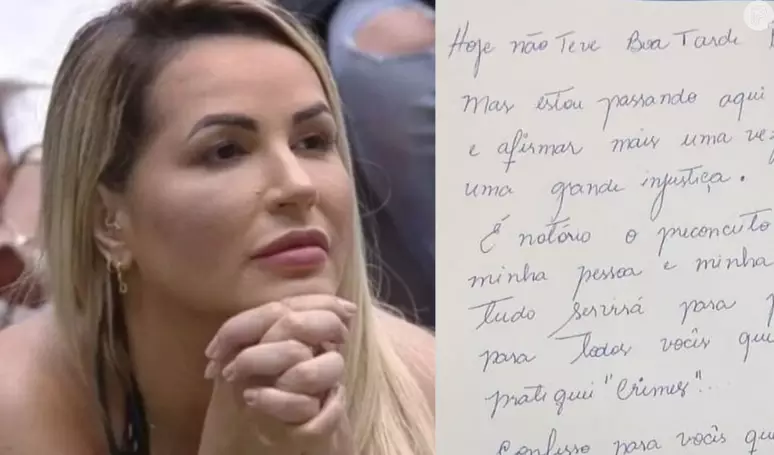 Hoje não Teve Boa Tarde
Mas estou passando aqui
e afirmar mais uma vez
uma grande injustiça.
É notório o preconceito
minha pessoa e minha
tudo servirá para
para todos vocês que
pratiquei "Crimes"...
Confesso para vocês que